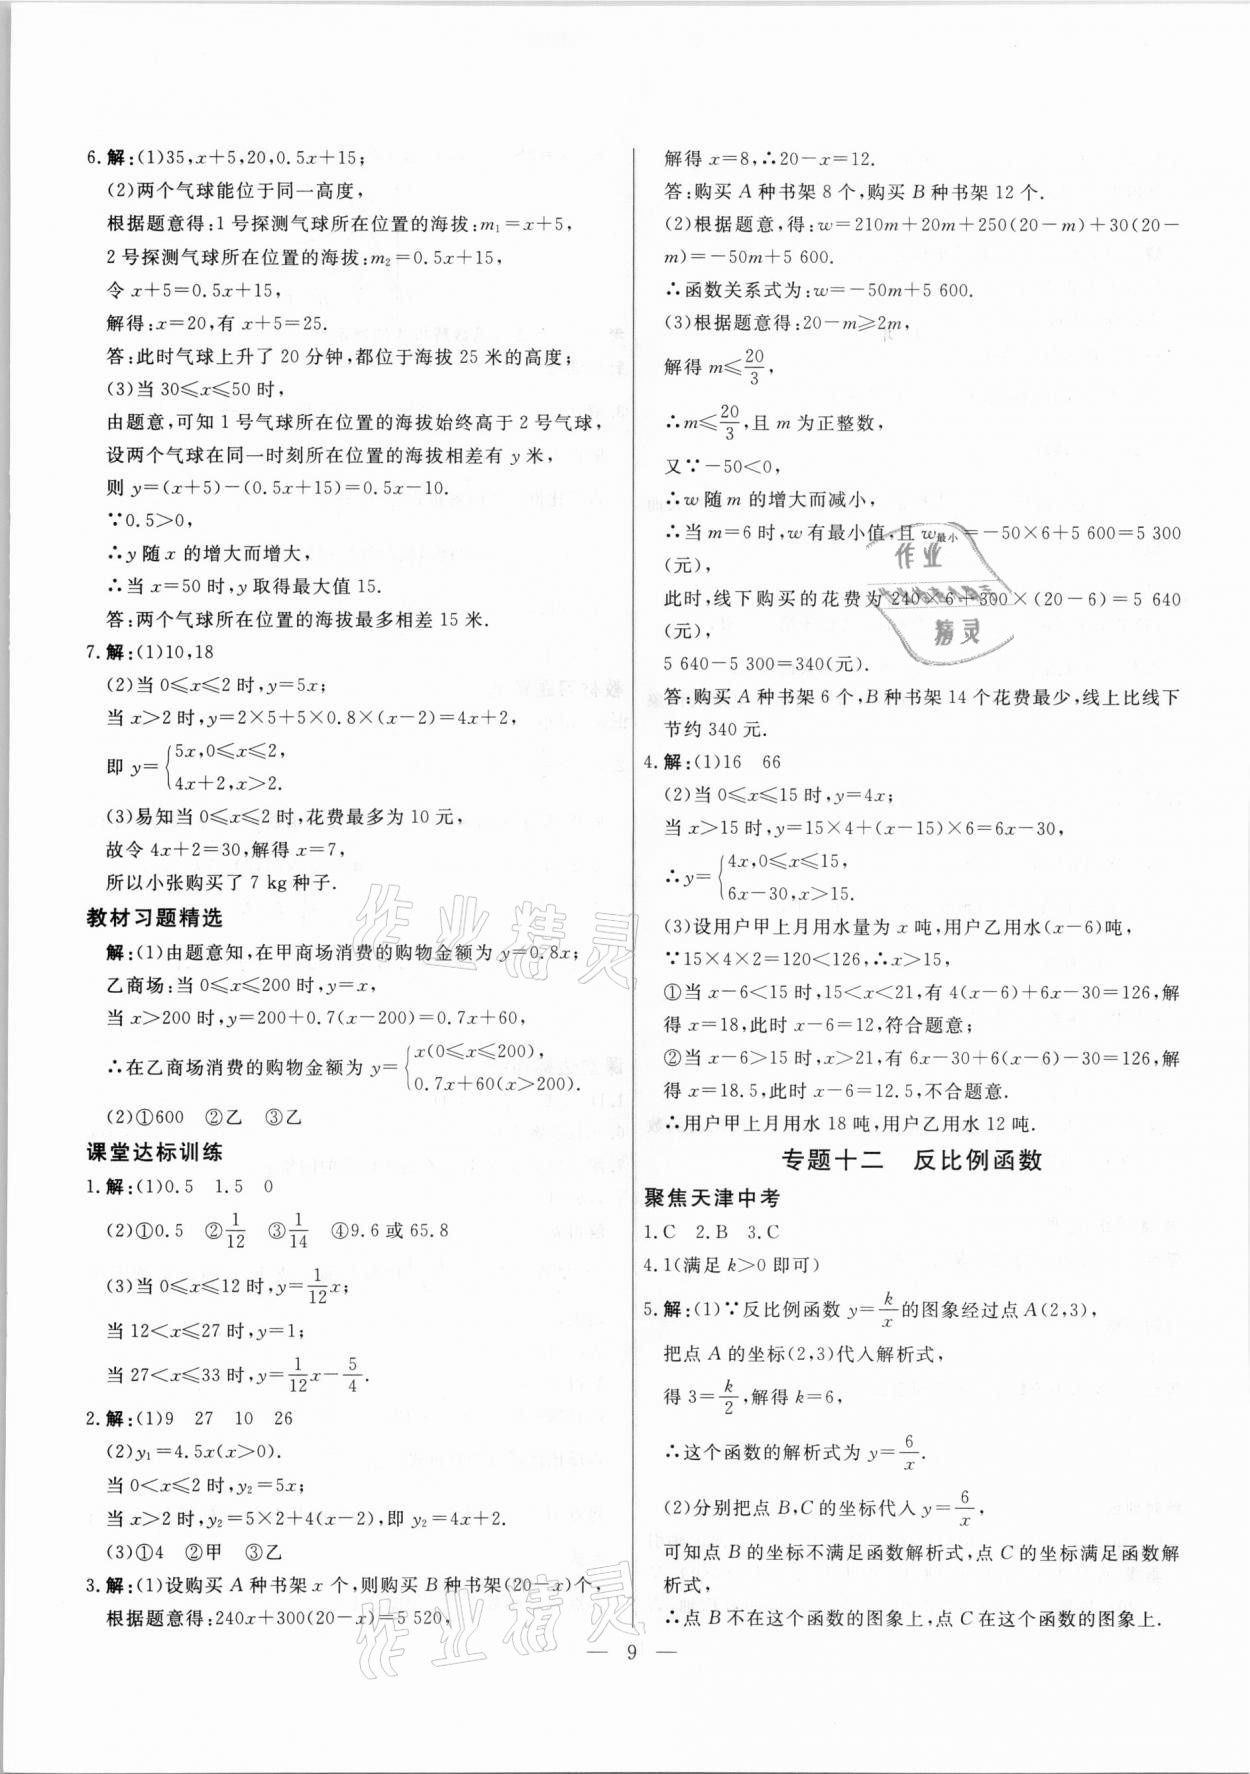 6.解:(1)35,x+5,20,0.5x+15;
(2)两个气球能位于同一高度,
根据题意得:1号探测气球所在位置的海拔:m₁=x+5,
2号探测气球所在位置的海拔:m₂=0.5x+15,
令x+5=0.5x+15,
解得:x=20,有x+5=25.
答:此时气球上升了20分钟,都位于海拔25米的高度;
(3)当30≤x≤50时,
由题意,可知1号气球所在位置的海拔始终高于2号气球,
设两个气球在同一时刻所在位置的海拔相差有y米,
则y=(x+5)-(0.5x+15)=0.5x-10.
∵0.5>0,
∴y随x的增大而增大,
∴当x=50时,y取得最大值15.
答:两个气球所在位置的海拔最多相差15米.
7.解:(1)10,18
(2)当0≤x≤2时,y=5x;
当x>2时,y=2×5+5×0.8×(x-2)=4x+2,
即y={5x,0≤x≤2,
4x+2,x>2.
(3)易知当0≤x≤2时,花费最多为10元,
故令4x+2=30,解得x=7,
所以小张购买了7 kg种子.
教材习题精选
解:(1)由题意知,在甲商场消费的购物金额为y=0.8x;
乙商场:当0≤x≤200时,y=x,
当x>200时,y=200+0.7(x-200)=0.7x+60,
∴在乙商场消费的购物金额为y={x(0≤x≤200),
0.7x+60(x>200).
(2)①600 ②乙 ③乙
课堂达标训练
1.解:(1)0.5 1.5 0
(2)①0.5 ②1/12 ③1/14 ④9.6或65.8
(3)当0≤x≤12时,y=1/12x;
当12<x≤27时,y=1;
当27<x≤33时,y=1/12x-5/4.
2.解:(1)9 27 10 26
(2)y₁=4.5x(x>0).
当0<x≤2时,y₂=5x;
当x>2时,y₂=5×2+4(x-2),即y₂=4x+2.
(3)①4 ②甲 ③乙
3.解:(1)设购买A种书架x个,则购买B种书架(20-x)个,
根据题意得:240x+300(20-x)=5 520,
解得x=8,∴20-x=12.
答:购买A种书架8个,购买B种书架12个.
(2)根据题意,得:w=210m+20m+250(20-m)+30(20-
m)=-50m+5 600.
∴函数关系式为:w=-50m+5 600.
(3)根据题意得:20-m≥2m,
解得m≤20/3,
∴m≤20/3,且m为正整数,
又∵-50<0,
∴w随m的增大而减小,
∴当m=6时,w有最小值,且w最小=-50×6+5 600=5 300
(元),
此时,线下购买的花费为240×6+300×(20-6)=5 640
(元),
5 640-5 300=340(元).
答:购买A种书架6个,B种书架14个花费最少,线上比线下
节约340元.
4.解:(1)16 66
(2)当0≤x≤15时,y=4x;
当x>15时,y=15×4+(x-15)×6=6x-30,
∴y={4x,0≤x≤15,
6x-30,x>15.
(3)设用户甲上月用水量为x吨,用户乙用水(x-6)吨,
∵15×4×2=120<126,∴x>15,
①当x-6<15时,15<x<21,有4(x-6)+6x-30=126,解
得x=18,此时x-6=12,符合题意;
②当x-6>15时,x>21,有6x-30+6(x-6)-30=126,解
得x=18.5,此时x-6=12.5,不合题意.
∴用户甲上月用水18吨,用户乙用水12吨.
专题十二 反比例函数
聚焦天津中考
1.C 2.B 3.C
4.1(满足k>0即可)
5.解:(1)∵反比例函数y=k/x的图象经过点A(2,3),
把点A的坐标(2,3)代入解析式,
得3=k/2,解得k=6,
∴这个函数的解析式为y=6/x.
(2)分别把点B,C的坐标代入y=6/x,
可知点B的坐标不满足函数解析式,点C的坐标满足函数解
析式,
∴点B不在这个函数的图象上,点C在这个函数的图象上.
— 9 —
作业精灵
作业精灵
作业
精灵